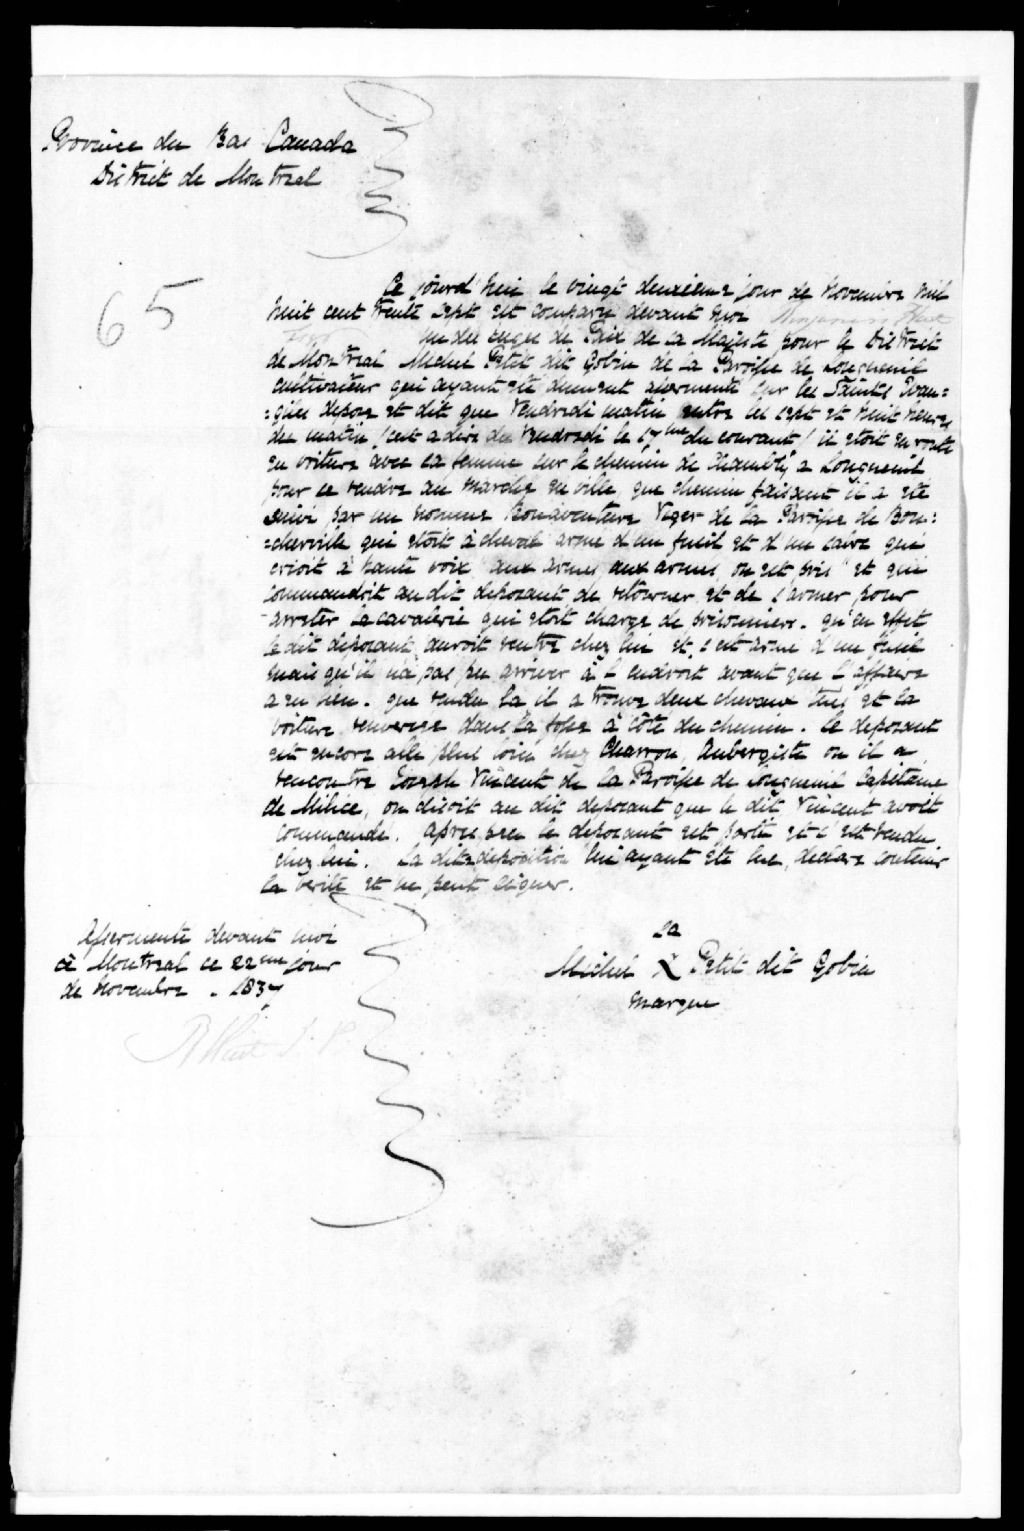 Province du Bas Canada
District de Montreal
65
Ce jourd'hui le vingt deuxieme jour de Novembre mil
huit cent trente sept est comparu devant moi Benjamin Hart
un des Juges de Paix de Sa Majesté pour le District
de Montreal Michel Petit dit Gobin de la Paroisse de Longueuil
cultivateur qui ayant été duement assermenté sur les Saints Evan=
=giles depose et dit que Vendredi matin entre les sept et huit heures
du matin (c'est a dire du Vendredi le 17me du courant) il etoit en route
en voiture avec sa femme sur le chemin de Chambly a Longueuil
pour se rendre au marché en ville, que chemin faisant il a été
suivi par un nommé Bonaventure Viger de la Paroisse de Bou=
=cherville qui etoit à cheval armé d'un fusil et d'un sabre qui
crioit à haute voix "aux armes, aux armes, on est pris" et qui
commandoit au dit deposant de retourner et de s'armer pour
arreter la cavalerie qui etoit chargé de prisonniers. qu'en effet
le dit deposant auroit rentré chez lui et s'est armé d'un fusil
mais qu'il n'a pas pu arriver à l'endroit avant que l'affaire
a eu lieu. que rendu la il a trouvé deux chevaux tués et la
voiture renversée dans la fosse à côté du chemin. Le deposant
est encore allé plus loin chez Charron, Aubergiste ou il a
rencontré Joseph Vincent de la Paroisse de Longueuil Capitaine
de Milice, on disoit au dit deposant que le dit Vincent avoit
commandé. après peu le deposant est parti et s'est rendu
chez lui. La dite deposition lui ayant été lue, declare contenir
la verité et ne peut signer.
Assermenté devant moi
à Montreal ce 22me jour
de Novembre . 1837
B Hart J. P.
sa
Michel X Petit dit Gobin
marque